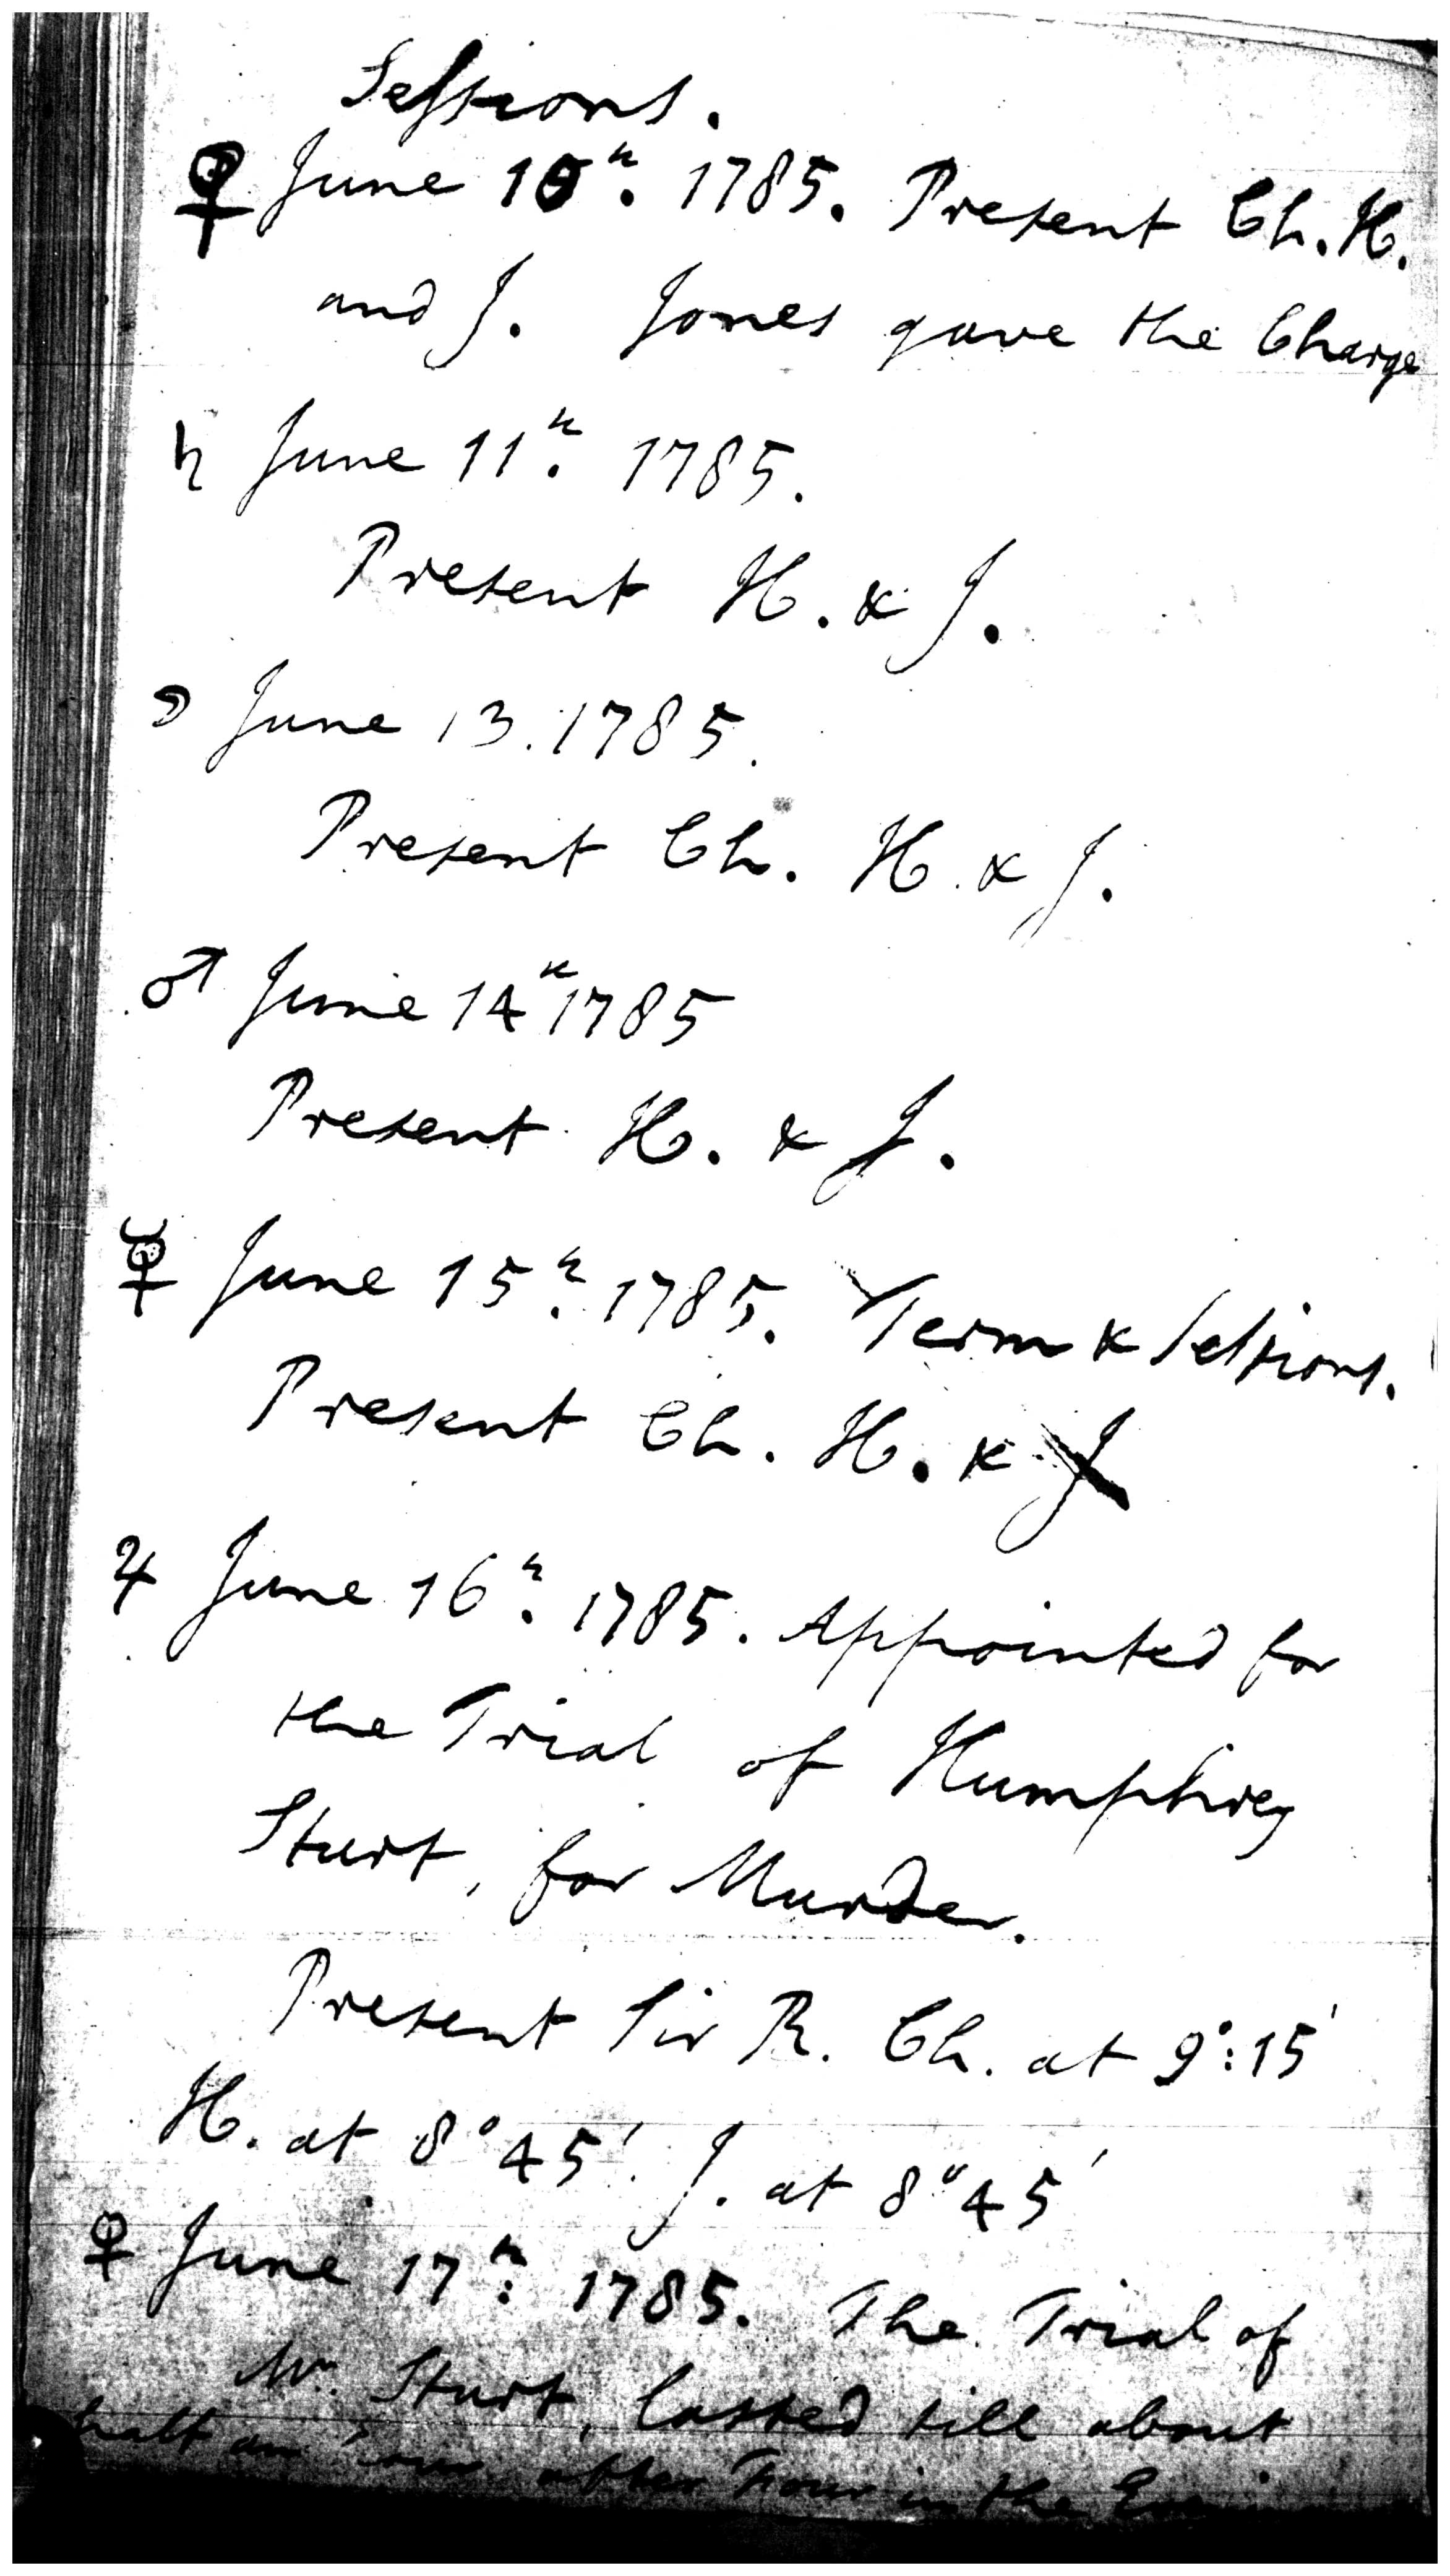 Sessions.
♀ June 10th. 1785. Present Ch. H.
and J. Jones gave the Charge
♄ June 11th. 1785.
Present H. & J.
☽ June 13. 1785.
Present Ch. H. & J.
♂ June 14th 1785
Present H. & J.
☿ June 15th. 1785. Term & Sessions.
Present Ch. H. & J
♃ June 16th. 1785. Appointed for
the Trial of Humphrey
Sturt, for Murder.
Present Sir R. Ch. at 9°:15'
H. at 8°45'. J. at 8°45'
♀ June 17th: 1785. The Trial of
Mr. Sturt, lasted till about
half an hour after Four in the